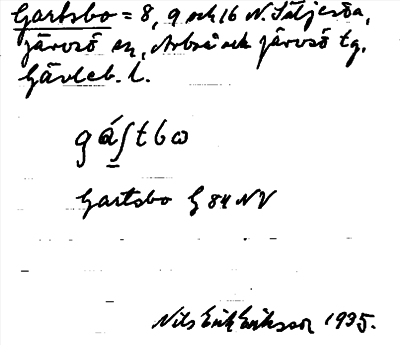 Gartsbo = 8, 9 och 16 N. Säljesta,
Järvsö sn, Arbrå och Järvsö tg,
Gävleb. l.
gáʃtbω
Gartsbo G 84 NV
Nils Erik Eriksson 1935.